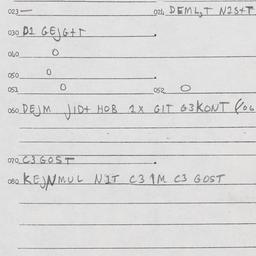 023 — 024 DEML,T N2S+T
030 D1 GEJG+T
040 0
050 0
051 0 052 0
060 DEJM JID+ HOB 1X GIT G3KONT
070 C3 GOST
080 KEJNMUL NIT C3 1M C3 GOST